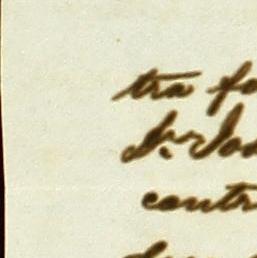 tra fo
Sr. Joa
contr